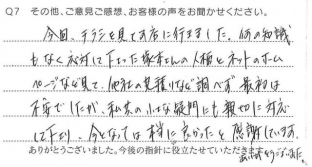 Q7 その他、ご意見ご感想、お客様の声をお聞かせください。
今回、チラシを見てお店に行きました。何の知識
もなく対応して下さった塚本さんの人柄とネットのホーム
ページなど見て、他社の見積りなど調べず最初は
不安でしたが、私共の小さな疑問にも親切に対応
して下さり、今となっては本当に良かったと感謝しています。
ありがとうございました。
ありがとうございました。今後の指針に役立たせていただきます。